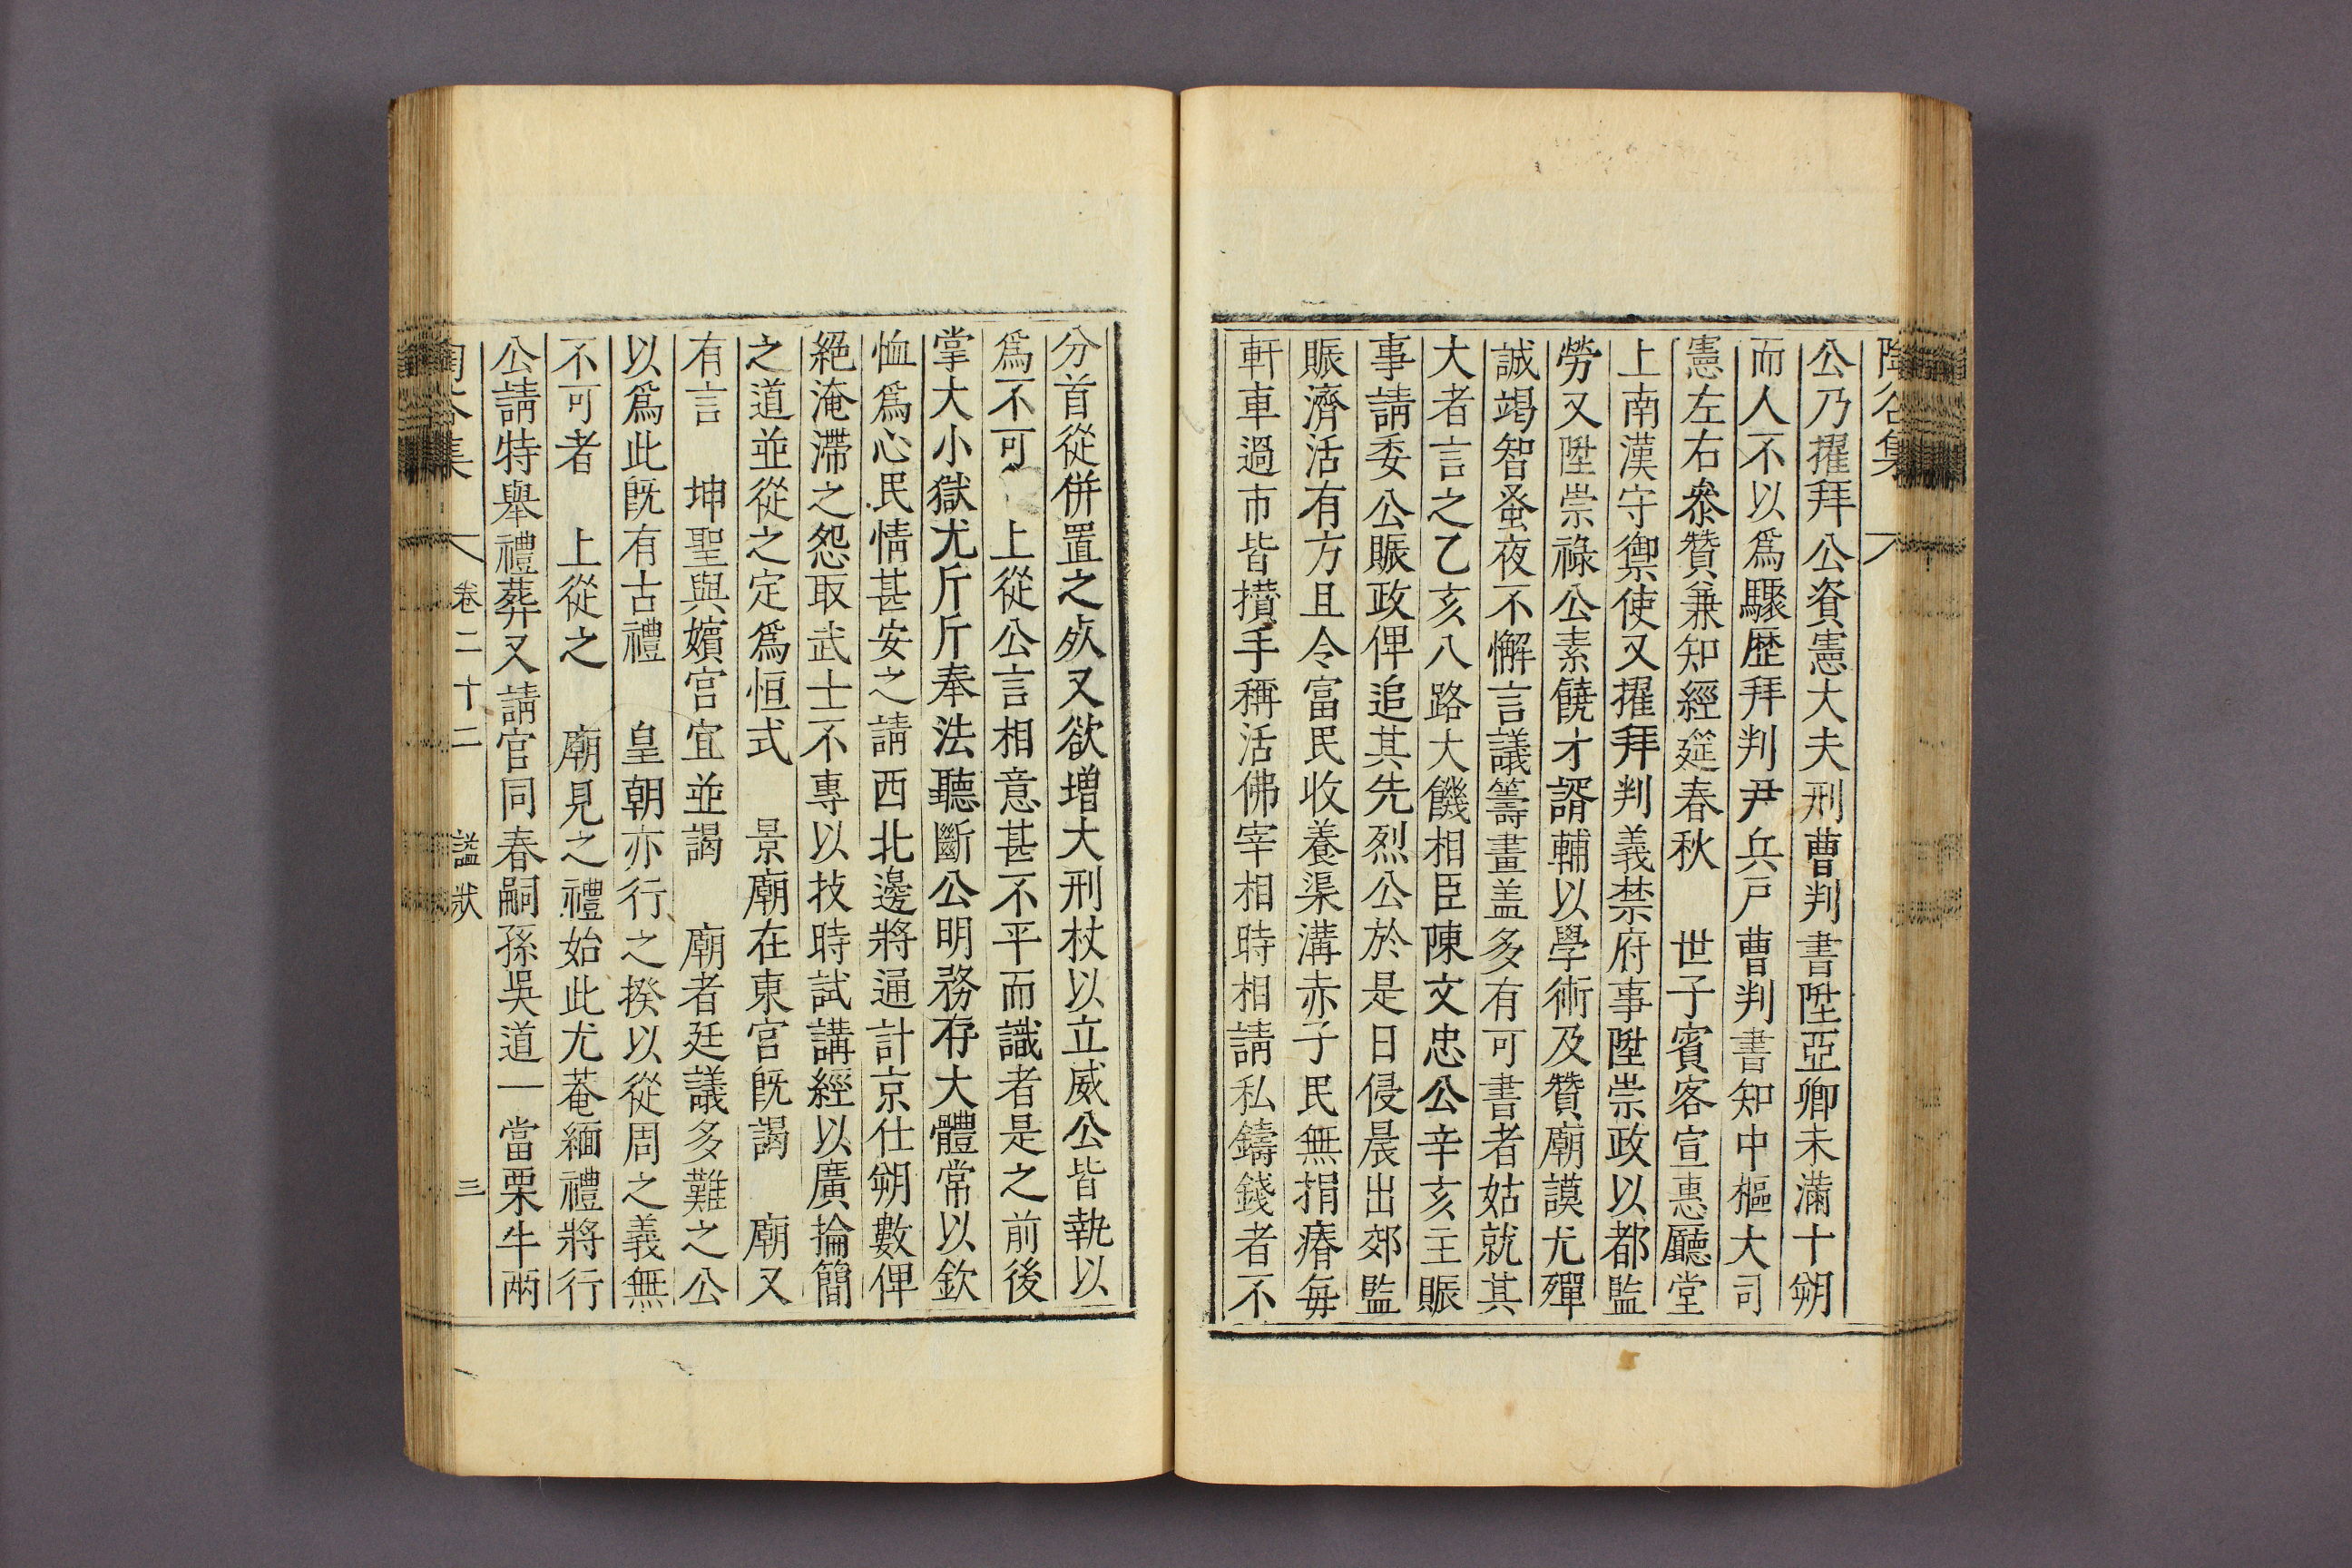 陶谷集
公乃擢拜公資憲大夫刑曹判書陞亞卿未滿十朔
而人不以爲驟歷拜判尹兵戶曹判書知中樞大司
憲左右叅贊兼知經筵春秋 世子賓客宣惠廳堂
上南漢守禦使又擢拜判義禁府事陞崇政以都監
勞又陞崇祿公素饒才諝輔以學術及贊廟謨尤殫
誠竭智蚤夜不懈言議籌畫盖多有可書者姑就其
大者言之乙亥八路大饑相臣陳文忠公辛亥主賑
事請委公賑政俾追其先烈公於是日侵晨出郊監
賑濟活有方且令富民收養渠溝赤子民無捐瘠每
軒車過市皆攢手稱活佛宰相時相請私鑄錢者不
分首從併置之死又欲增大刑杖以立威公皆執以
爲不可 上從公言相意甚不平而識者是之前後
掌大小獄尤斤斤奉法聽斷公明務存大體常以欽
恤爲心民情甚安之請西北邊將通計京仕朔數俾
絕淹滯之怨取武士不專以技時試講經以廣掄簡
之道並從之定爲恒式 景廟在東宮旣謁 廟又
有言 坤聖與嬪宮宜並謁 廟者廷議多難之公
以爲此旣有古禮 皇朝亦行之揆以從周之義無
不可者 上從之 廟見之禮始此尤菴緬禮將行
公請特舉禮葬又請官同春嗣孫吳道一當栗牛兩
陶谷集 卷二十二 諡狀 三